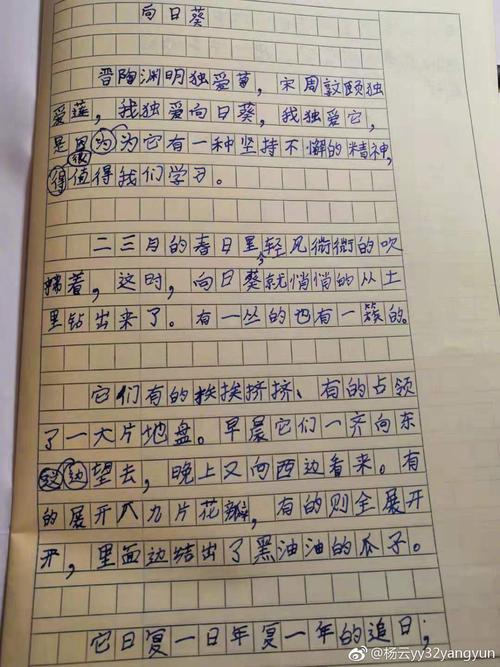 向日葵
晋陶渊明独爱菊，宋周敦颐独
爱莲，我独爱向日葵，我独爱它，
是因为为它有一种坚持不懈的精神，
很
得值得我们学习。
二三月的春日里，轻风微微的吹
拂着，这时，向日葵就悄悄的从土
里钻出来了。有一丛的也有一簇的。
它们有的挨挨挤挤、有的占领
了一大片地盘。早晨它们一齐向东
边望去，晚上又向西边看来。有
的展开八九片花瓣，有的则全展开
开，里面边结出了黑油油的瓜子。
它日复一日年复一年的追日；
@杨云yy32yangyun